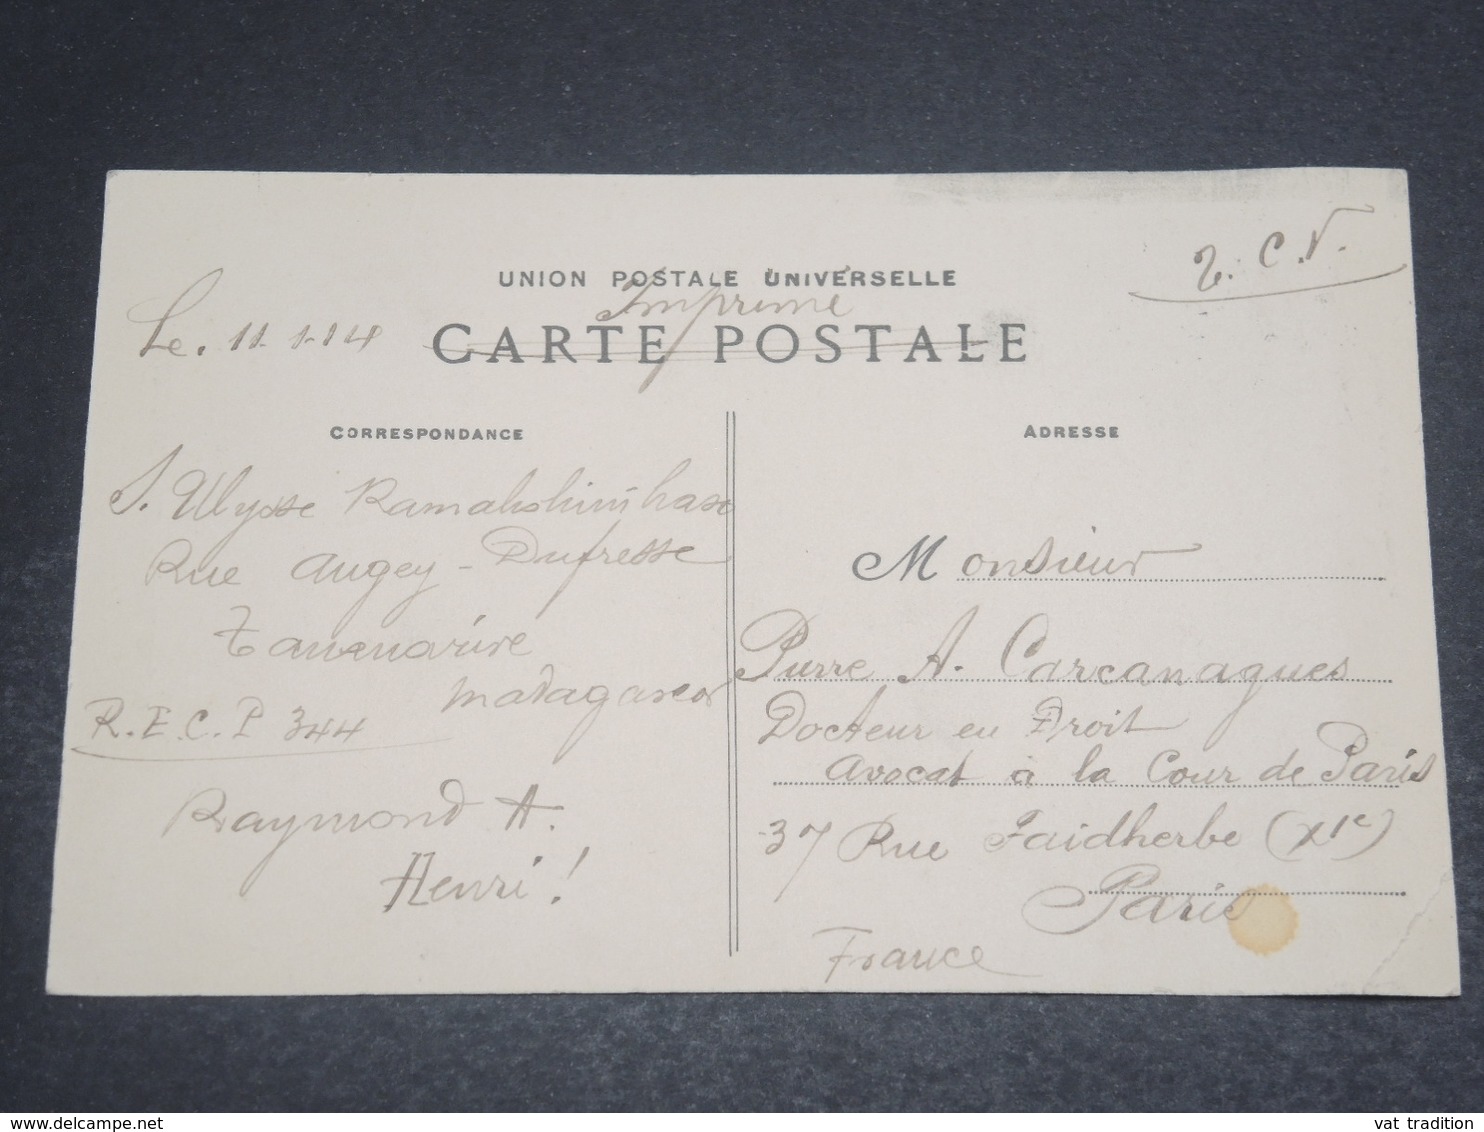 T.C.V.
UNION POSTALE UNIVERSELLE
Imprime
Le. 11.1.14
CARTE POSTALE
CORRESPONDANCE
S. Ulysse
Rue Augey-Dufresse
Tananarive
Madagascar
R.E.C.P 344
Raymond A.
Henri!
ADRESSE
Monsieur
Pierre A. Carcanagues
Docteur en Droit
Avocat à la Cour de Paris
37 Rue Faidherbe (XIe)
Paris
France
vat tradition